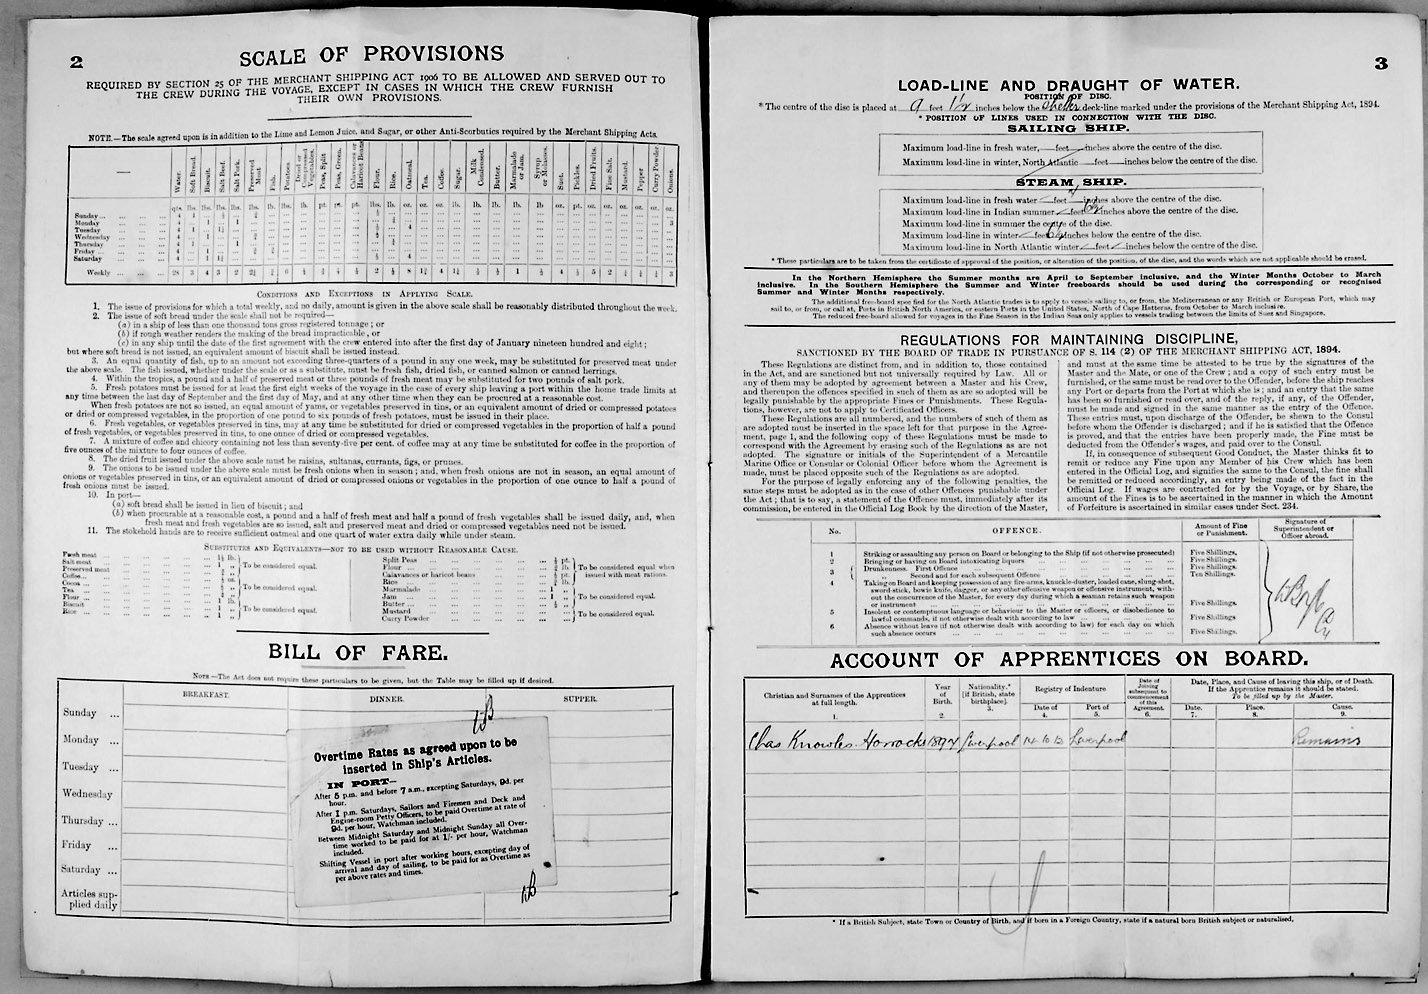 2
SCALE OF PROVISIONS
REQUIRED BY SECTION 25 OF THE MERCHANT SHIPPING ACT 1906 TO BE ALLOWED AND SERVED OUT TO
THE CREW DURING THE VOYAGE, EXCEPT IN CASES IN WHICH THE CREW FURNISH
THEIR OWN PROVISIONS.
NOTE.—The scale agreed upon is in addition to the Lime and Lemon Juice, and Sugar, or other Anti-Scorbutics required by the Merchant Shipping Acts.
Water. Soft Bread. Biscuit. Salt Beef. Salt Pork. Preserved Meat. Fish. Potatoes. Dried or Compressed Vegetables. Peas, Split Peas, Green. Calavances or Haricot Beans Flour. Rice. Oatmeal. Tea. Coffee. Sugar. Milk Condensed. Butter. Marmalade or Jam. Syrup or Molasses. Suet. Pickles. Dried Fruits. Fine Salt. Mustard. Pepper Curry Powder. Onions.
Sunday...
Monday
Tuesday
Wednesday
Thursday
Friday
Saturday
Weekly
CONDITIONS AND EXCEPTIONS IN APPLYING SCALE.
1. The issue of provisions for which a total weekly, and no daily, amount is given in the above scale shall be reasonably distributed throughout the week.
2. The issue of soft bread under the scale shall not be required—
(a) in a ship of less than one thousand tons gross registered tonnage; or
(b) if rough weather renders the making of the bread impracticable, or
(c) in any ship until the date of the first agreement with the crew entered into after the first day of January nineteen hundred and eight;
but where soft bread is not issued, an equivalent amount of biscuit shall be issued instead.
3. An equal quantity of fish, up to an amount not exceeding three-quarters of a pound in any one week, may be substituted for preserved meat under
the above scale. The fish issued, whether under the scale or as a substitute, must be fresh fish, dried fish, or canned salmon or canned herrings.
4. Within the tropics, a pound and a half of preserved meat or three pounds of fresh meat may be substituted for two pounds of salt pork.
5. Fresh potatoes must be issued for at least the first eight weeks of the voyage in the case of every ship leaving a port within the home trade limits at
any time between the last day of September and the first day of May, and at any other time when they can be procured at a reasonable cost.
When fresh potatoes are not so issued, an equal amount of yams, or vegetables preserved in tins, or an equivalent amount of dried or compressed potatoes
or dried or compressed vegetables, in the proportion of one pound to six pounds of fresh potatoes, must be issued in their place.
6. Fresh vegetables, or vegetables preserved in tins, may at any time be substituted for dried or compressed vegetables in the proportion of half a pound
of fresh vegetables, or vegetables preserved in tins, to one ounce of dried or compressed vegetables.
7. A mixture of coffee and chicory containing not less than seventy-five per cent. of coffee may at any time be substituted for coffee in the proportion of
five ounces of the mixture to four ounces of coffee.
8. The dried fruit issued under the above scale must be raisins, sultanas, currants, figs, or prunes.
9. The onions to be issued under the above scale must be fresh onions when in season; and, when fresh onions are not in season, an equal amount of
onions or vegetables preserved in tins, or an equivalent amount of dried or compressed onions or vegetables in the proportion of one ounce to half a pound of
fresh onions must be issued.
10. In port—
(a) soft bread shall be issued in lieu of biscuit; and
(b) when procurable at a reasonable cost, a pound and a half of fresh meat and half a pound of fresh vegetables shall be issued daily, and, when
fresh meat and fresh vegetables are so issued, salt and preserved meat and dried or compressed vegetables need not be issued.
11. The stokehold hands are to receive sufficient oatmeal and one quart of water extra daily while under steam.
SUBSTITUTES AND EQUIVALENTS—NOT TO BE USED WITHOUT REASONABLE CAUSE.
Fresh meat
Salt meat
Preserved meat
To be considered equal.
Coffee...
Cocoa
Tea
To be considered equal.
Flour
Biscuit
Rice
To be considered equal.
Split Peas
Flour
Calavances or haricot beans
Rice
To be considered equal when
issued with meat rations.
Marmalade
Jam
Butter
To be considered equal.
Mustard
Curry Powder
To be considered equal.
BILL OF FARE.
NOTE—The Act does not require these particulars to be given, but the Table may be filled up if desired.
BREAKFAST. DINNER. SUPPER.
Sunday ...
Monday ...
Tuesday ...
Wednesday
Thursday ...
Friday ...
Saturday ...
Articles sup-
plied daily
Overtime Rates as agreed upon to be
inserted in Ship's Articles.
IN PORT—
After 5 p.m. and before 7 a.m., excepting Saturdays, 9d. per
hour.
After 1 p.m. Saturdays, Sailors and Firemen and Deck and
Engine-room Petty Officers, to be paid Overtime at rate of
9d. per hour, Watchman included.
Between Midnight Saturday and Midnight Sunday all Over-
time worked to be paid for at 1/- per hour, Watchman
included.
Shifting Vessel in port after working hours, excepting day of
arrival and day of sailing, to be paid for as Overtime as
per above rates and times.
3
LOAD-LINE AND DRAUGHT OF WATER.
POSITION OF DISC.
* The centre of the disc is placed at 9 feet 1½ inches below the shelter deck-line marked under the provisions of the Merchant Shipping Act, 1894.
* POSITION OF LINES USED IN CONNECTION WITH THE DISC.
SAILING SHIP.
Maximum load-line in fresh water, feet inches above the centre of the disc.
Maximum load-line in winter, North Atlantic feet inches below the centre of the disc.
STEAM SHIP.
Maximum load-line in fresh water feet inches above the centre of the disc.
Maximum load-line in Indian summer feet inches above the centre of the disc.
Maximum load-line in summer the centre of the disc.
Maximum load-line in winter feet inches below the centre of the disc.
Maximum load-line in North Atlantic winter feet inches below the centre of the disc.
* These particulars are to be taken from the certificate of approval of the position, or alteration of the position, of the disc, and the words which are not applicable should be erased.
In the Northern Hemisphere the Summer months are April to September inclusive, and the Winter Months October to March
inclusive. In the Southern Hemisphere the Summer and Winter freeboards should be used during the corresponding or recognised
Summer and Winter Months respectively.
The additional free-board specified for the North Atlantic trades is to apply to vessels sailing to, or from, the Mediterranean or any British or European Port, which may
sail to, or from, or call at, Ports in British North America, or eastern Ports in the United States, North of Cape Hatteras, from October to March inclusive.
The reduced free-board allowed for voyages in the Fine Season in the Indian Seas only applies to vessels trading between the limits of Suez and Singapore.
REGULATIONS FOR MAINTAINING DISCIPLINE,
SANCTIONED BY THE BOARD OF TRADE IN PURSUANCE OF S. 114 (2) OF THE MERCHANT SHIPPING ACT, 1894.
These Regulations are distinct from, and in addition to, those contained
in the Act, and are sanctioned but not universally required by Law. All or
any of them may be adopted by agreement between a Master and his Crew,
and thereupon the offences specified in such of them as are so adopted will be
legally punishable by the appropriate Fines or Punishments. These Regula-
tions, however, are not to apply to Certificated Officers.
These Regulations are all numbered, and the numbers of such of them as
are adopted must be inserted in the space left for that purpose in the Agree-
ment, page 1, and the following copy of these Regulations must be made to
correspond with the Agreement by erasing such of the Regulations as are not
adopted. The signature or initials of the Superintendent of a Mercantile
Marine Office or Consular or Colonial Officer before whom the Agreement is
made, must be placed opposite such of the Regulations as are adopted.
For the purpose of legally enforcing any of the following penalties, the
same steps must be adopted as in the case of other Offences punishable under
the Act; that is to say, a statement of the Offence must, immediately after its
commission, be entered in the Official Log Book by the direction of the Master,
and must at the same time be attested to be true by the signatures of the
Master and the Mate, or one of the Crew; and a copy of such entry must be
furnished, or the same must be read over to the Offender, before the ship reaches
any Port or departs from the Port at which she is; and an entry that the same
has been so furnished or read over, and of the reply, if any, of the Offender,
must be made and signed in the same manner as the entry of the Offence.
These entries must, upon discharge of the Offender, be shewn to the Consul
before whom the Offender is discharged; and if he is satisfied that the Offence
is proved, and that the entries have been properly made, the Fine must be
deducted from the Offender's wages, and paid over to the Consul.
If, in consequence of subsequent Good Conduct, the Master thinks fit to
remit or reduce any Fine upon any Member of his Crew which has been
entered in the Official Log, and signifies the same to the Consul, the fine shall
be remitted or reduced accordingly, an entry being made of the fact in the
Official Log. If wages are contracted for by the Voyage, or by Share, the
amount of the Fines is to be ascertained in the manner in which the Amount
of Forfeiture is ascertained in similar cases under Sect. 234.
No. OFFENCE. Amount of Fine or Punishment. Signature of Superintendent or Officer abroad.
1 Striking or assaulting any person on Board or belonging to the Ship (if not otherwise prosecuted) Five Shillings.
2 Bringing or having on Board intoxicating liquors Five Shillings.
3 Drunkenness. First Offence Five Shillings.
„ Second and for each subsequent Offence Ten Shillings.
4 Taking on Board and keeping possession of any fire-arms, knuckle-duster, loaded cane, slung-shot,
sword-stick, bowie knife, dagger, or any other offensive weapon or offensive instrument, with-
out the concurrence of the Master, for every day during which a seaman retains such weapon
or instrument Five Shillings.
5 Insolent or contemptuous language or behaviour to the Master or officers, or disobedience to
lawful commands, if not otherwise dealt with according to law Five Shillings.
6 Absence without leave (if not otherwise dealt with according to law) for each day on which
such absence occurs Five Shillings.
ACCOUNT OF APPRENTICES ON BOARD.
Christian and Surnames of the Apprentices at full length. 1.
Year of Birth. 2.
Nationality.* [if British, state birthplace]. 3.
Registry of Indenture
Date of 4. Port of 5.
Date of Joining subsequent to commencement of this Agreement. 6.
Date, Place, and Cause of leaving this ship, or of Death.
If the Apprentice remains it should be stated.
To be filled up by the Master.
Date. 7. Place. 8. Cause. 9.
Chas Knowles Horrocks 1894 Liverpool 14.10.13 Liverpool Remains
* If a British Subject, state Town or Country of Birth, and if born in a Foreign Country, state if a natural born British subject or naturalised.